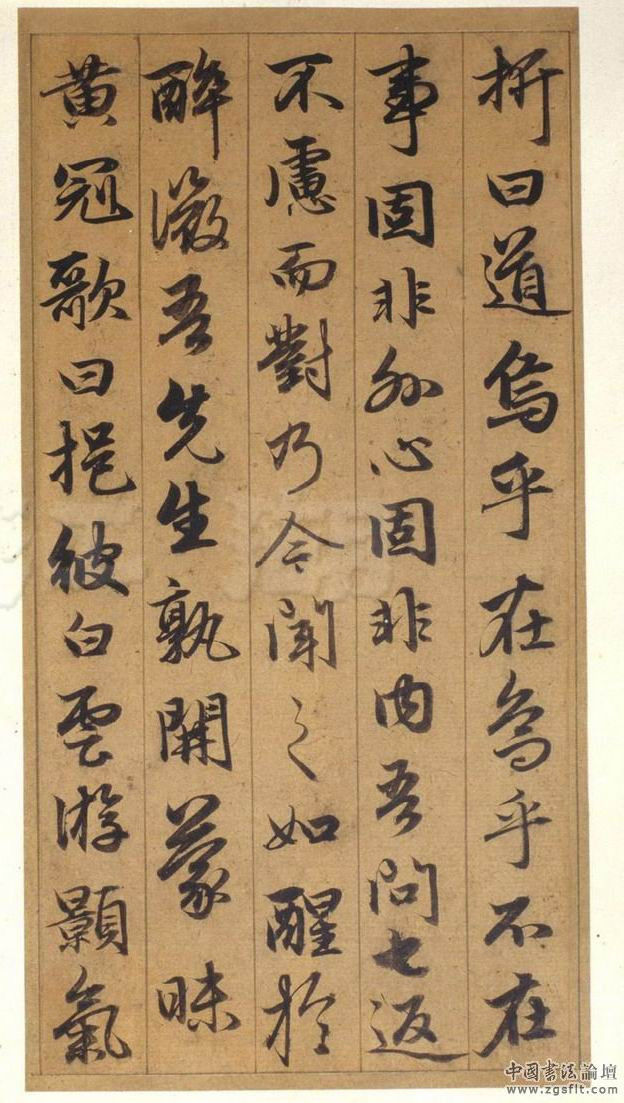 折曰道烏乎在烏乎不在
事固非外心固非内吾問七返
不慮而對乃今聞之如醒於
醉微吾先生孰開蒙昧
黄冠歌曰挹彼白雲游顥氣
中國書法論壇
www.zgsflt.com